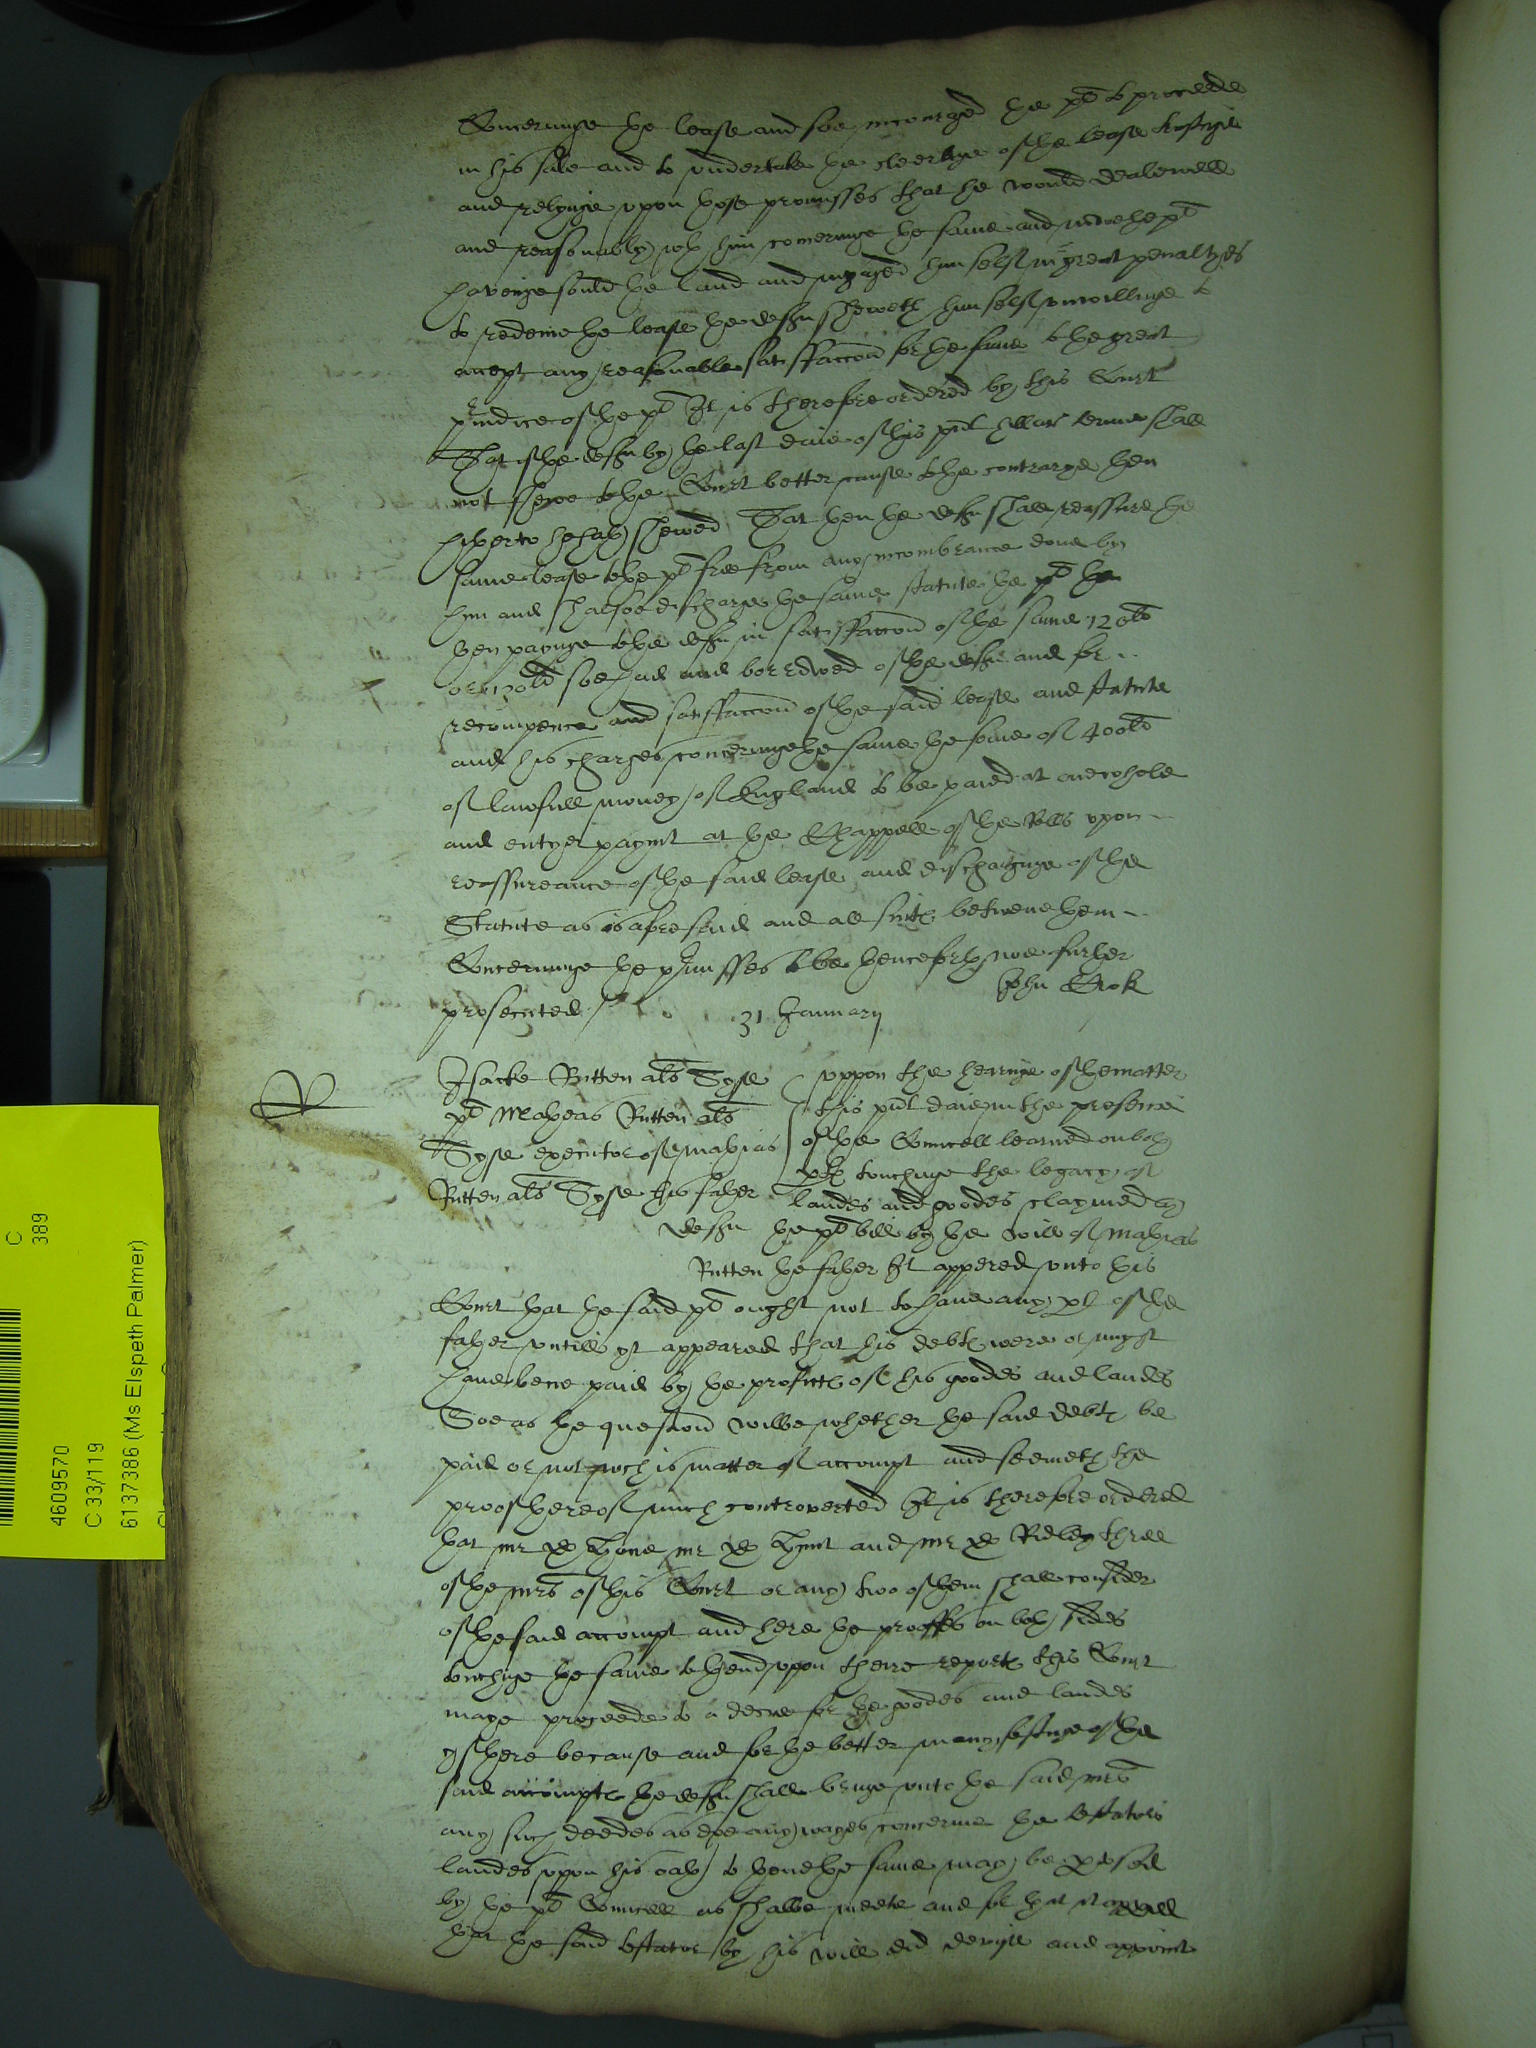 Concerninge the lease and soe incouraged the plt to proceede
in his sale and to undertake the cleeringe of the lease
and relyinge upon those promisses that he would deale well
and reasonably wth him concerninge the same and nowe the plt
havinge sould the land and ingaged him self in great penaltyes
to redeme the lease the deft sheweth him self unwillinge to
accept any reasonable satisfaccon for the same to the great
preiudice of the plt It is therefore ordered by this Court
That if the deft by the last daie of this pnt Hillar terme shall
not shewe to the Court better cause to the contrarye then
hitherto he hath shewed That then the deft shall reassure the
same lease to the plt free from any incombrance done by
him and shall soe discharge the same statute the plt he
then payinge to the deft in satisfaccon of the same 120li
or 130li soe had and borrowed of the deft and for
recompence and satisfaccon of the said lease and statute
and his charges concerninge the same the some of 400li
of lawfull money of England to be paied at one whole
and entyer paymt at the Chappell of the Rolls upon
reassureance of the said lease and discharginge of the
Statute as is aforesaid and all suites betwene them
Concerninge the premisses to be henceforth noe further
prosecuted / John Crok
31 January
Isacke Rutten als Syse
plt Matheas Rutten als
Syse executor of Mathias
Rutten als Syse his father
deft
uppon the hearinge of the matter
this pnt daie in the presence
of the Councell learned on both
pts touchinge the legacy of
landes and goodes claymed by
the plt bill by the will of Mathias
Rutten the father It appered unto this
Court that the said plt ought not to have any pt of the
father untill yt appeared that his debts were or might
have bene paid by the profitts of his goodes and landes
Soe as the question wilbe whether the said debts be
paid or not wch is matter of accompt and seemeth the
proof thereof much controverted It is therefore ordered
that mr D Hone mr D Hunt and mr D Ridley three
of the mrs of this Court or any two of them shall consider
of the said accompt and here the prooffes on both sides
touchinge the same to thend upon theire reporte this Court
maye proceede to a decree for the goodes and landes
yf there be cause and for the better manyfestinge of the
said accompts the deft shall bringe unto the said mrs
any such deedes as doe any wayes concerne the testators
landes upon his oath to thend the same may be perused
by the plt Councell as shalbe meete and for that it
that the said testator by his will did devyse and appoint
C
389
4609570
C 33/119
6137386 (Ms Elspeth Palmer)